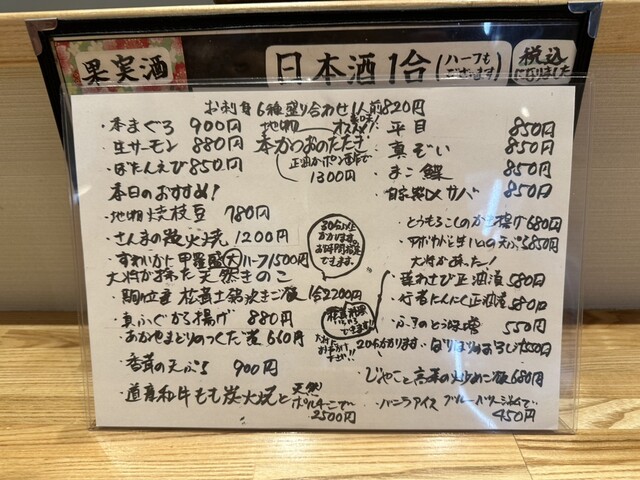 果実酒
日本酒1合(ハーフもございます)
税込になりました
お刺身6種盛り合わせ1人前820円
・本まぐろ 900円
・生サーモン 880円
・ぼたんえび 850円
地物
オススメ!
本かつおのたたき
正油かポン酢で
1300円
・平目 850円
・真ぞい 850円
・まこ鰈 850円
・自家製〆サバ 850円
本日のおすすめ!
・地物 焼枝豆 780円
・さんまの炭火焼 1200円
・ずわいがに甲羅盛(大)ハーフ1500円
大将が採った天然きのこ
・釜炊きご飯 1合2200円
30分以上
かかります。
お時間
できます。
・真ふぐから揚げ 880円
・あかやまどりのつくだ煮 660円
・香茸の天ぷら 900円
・道産和牛もも炭火焼と天然
ポルチーニで
2500円
20分かかります
・とうもろこしのかき揚げ 680円
・アボカドと生ハムの天ぷら 850円
大将が採った!
・葉わさび正油漬 580円
・行者にんにく正油漬 580円
・ふきのとう味噌 550円
・じゃこと高菜の炒めご飯 680円
・バニラアイス ブルーベリージャムで
450円